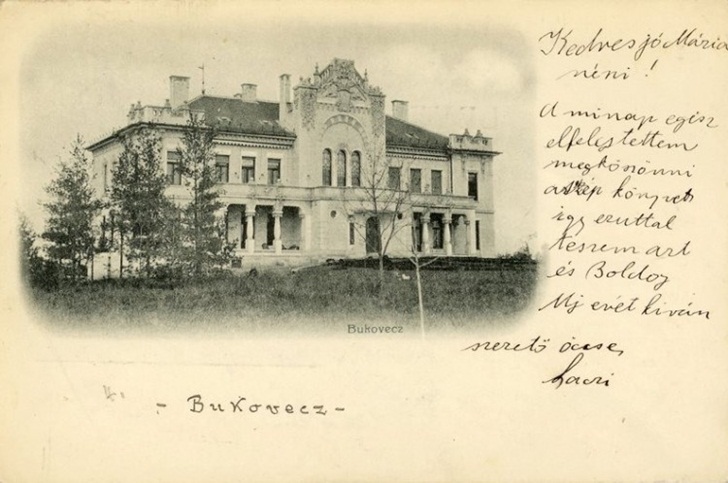 Kedves jó Mária
néni!
A minap egész
elfelestettem
megköszönni
a szép könyvet
így ezuttal
teszem azt
és Boldog
Uj évét kiván
szerető öccse,
Laczi
Bukovecz
- Bukovecz -